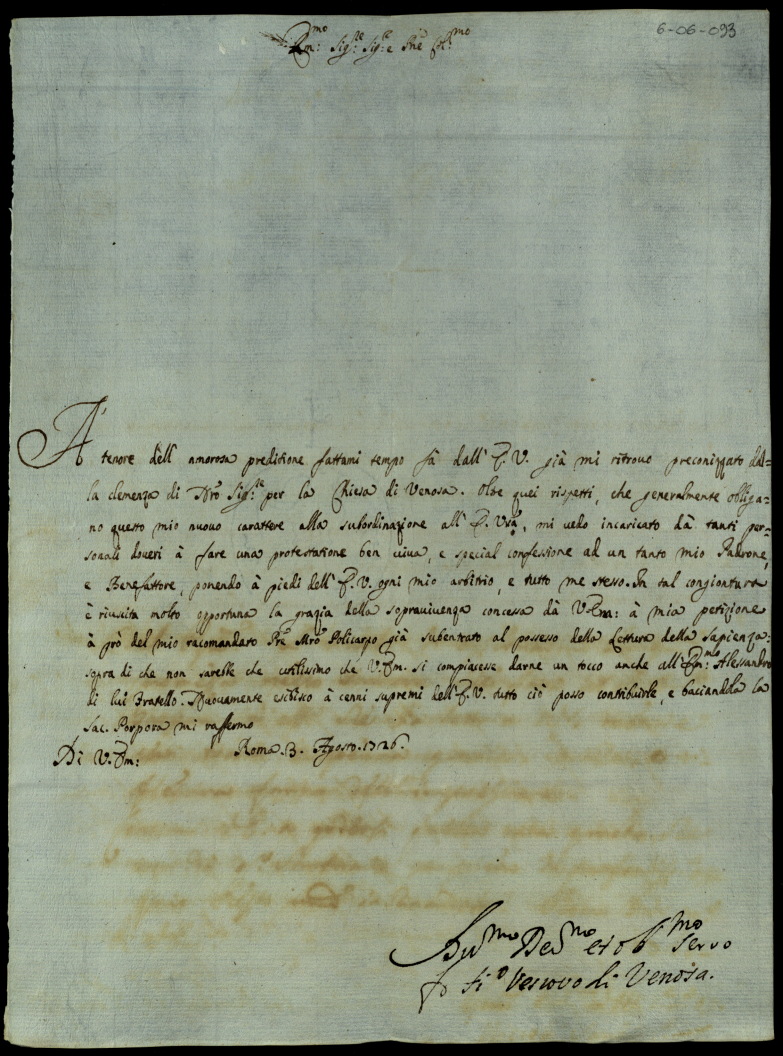 6-06-093
Em:mo Sig:re Sig:re e Pne Col:mo
A' tenore dell' amorosa preditione fattami tempo fà dall' E. V. già mi ritrovo preconizzato dal=
la clemenza di Nro Sig:re per la Chiesa di Venosa. Oltre quei rispetti, che generalmente obliga=
no questo mio nuovo carattere alla subordinazione all' E. Vra, mi vedo incaricato dà tanti per=
sonali doveri à fare una protestatione ben viva, e special confessione ad un tanto mio Padrone,
e Benefattore, ponendo à piedi dell' E. V. ogni mio arbitrio, e tutto me stesso. In tal congiontura
è riuscita molto opportuna la grazia della sopravivenza concessa dà V. Em: à mia petizione
à prò del mio racomandato Pre Mro Policarpo già subentrato al possesso della Lettura della Sapienza:
sopra di che non sarebbe che utilissimo che V. Em. si compiacesse darne un tocco anche all' Em:mo Alessandro
di lui Fratello. Nuovamente esibisco à cenni supremi dell' E. V. tutto ciò posso contribuirle, e baciandola la
Sac. Porpora mi raffermo
Di V. Em: Roma. 3. Agosto. 1726.
Hu:mo Dev:mo et Ob:mo Servo
Vescovo di Venosa.